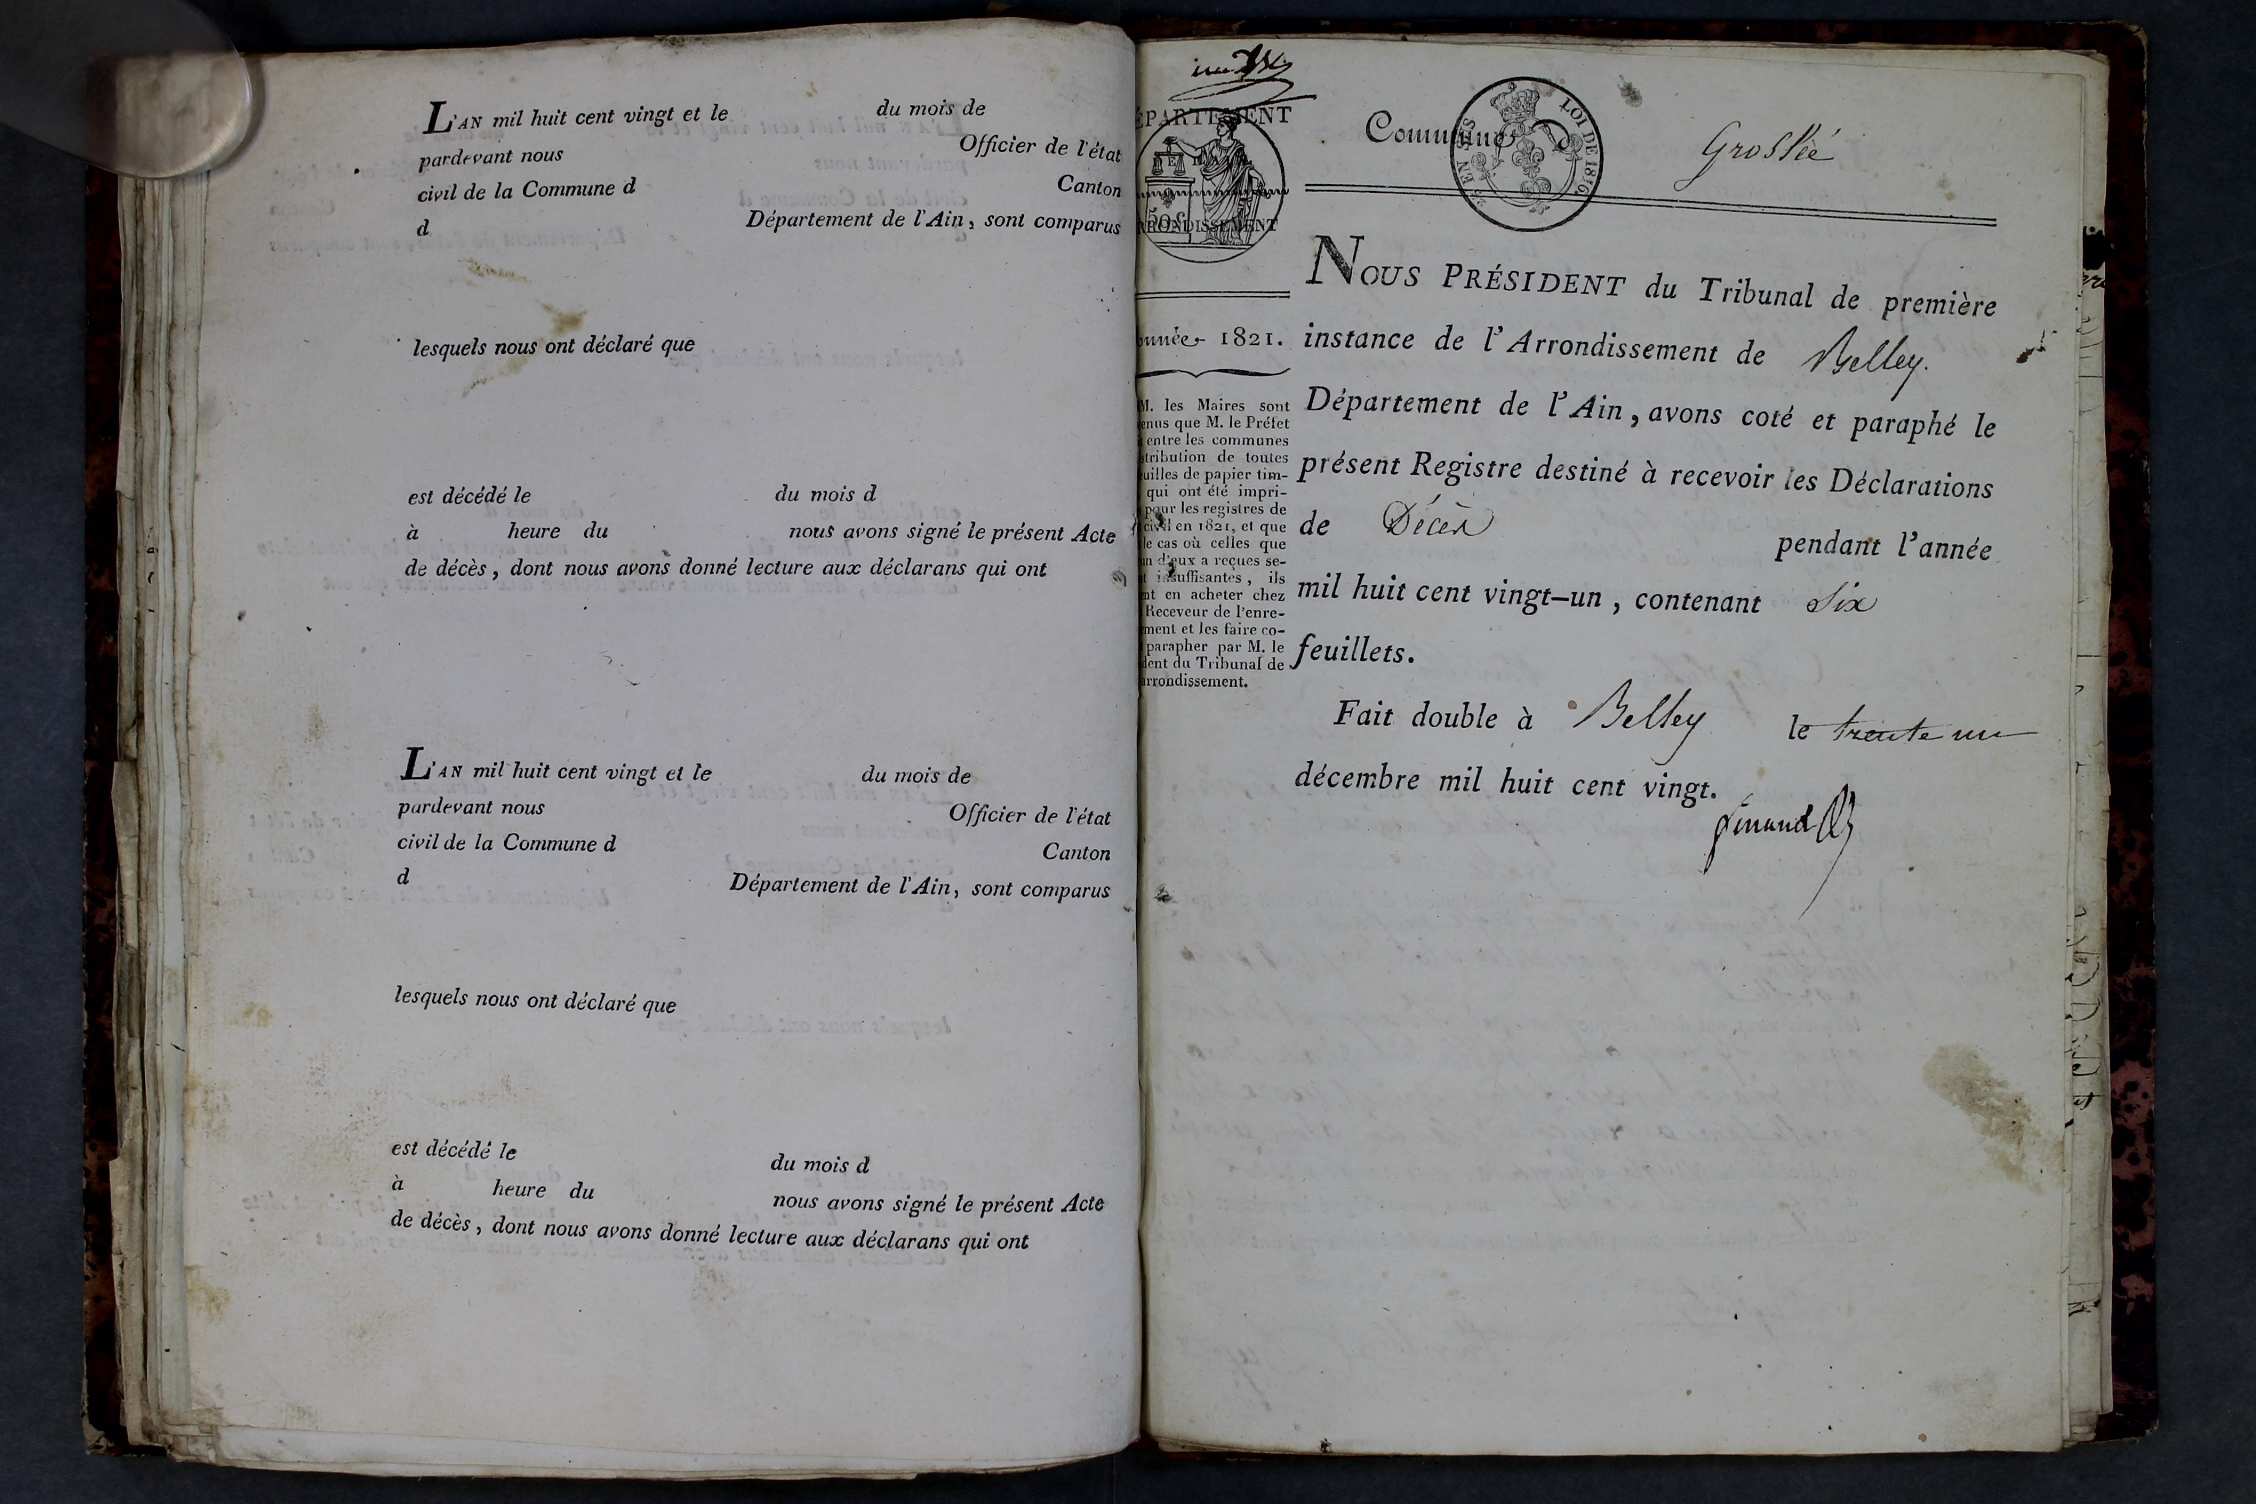 L'AN mil huit cent vingt et le du mois de
pardevant nous Officier de l'état
civil de la Commune d Canton
d Département de l'Ain, sont comparus
lesquels nous ont déclaré que
est décédé le du mois d
à heure du nous avons signé le présent Acte
de décès, dont nous avons donné lecture aux déclarans qui ont
L'AN mil huit cent vingt et le du mois de
pardevant nous Officier de l'état
civil de la Commune d Canton
d Département de l'Ain, sont comparus
lesquels nous ont déclaré que
est décédé le du mois d
à heure du nous avons signé le présent Acte
de décès, dont nous avons donné lecture aux déclarans qui ont
ÉPARTEMENT
50 c.
RRONDISSEMENT
nnée 1821.
M. les Maires sont
enus que M. le Préfet
entre les communes
tribution de toutes
uilles de papier tim-
qui ont été impri-
pour les registres de
civil en 1821, et que
le cas où celles que
un d'eux a reçues se-
t insuffisantes, ils
nt en acheter chez
Receveur de l'enre-
ment et les faire co-
parapher par M. le
dent du Tribunal de
arrondissement.
Commune d Groslée
LOI DE 1816.
NOUS PRÉSIDENT du Tribunal de première
instance de l'Arrondissement de Belley.
Département de l'Ain, avons coté et paraphé le
présent Registre destiné à recevoir les Déclarations
de Décès pendant l'année
mil huit cent vingt-un, contenant Six
feuillets.
Fait double à Belley le trente un
décembre mil huit cent vingt.